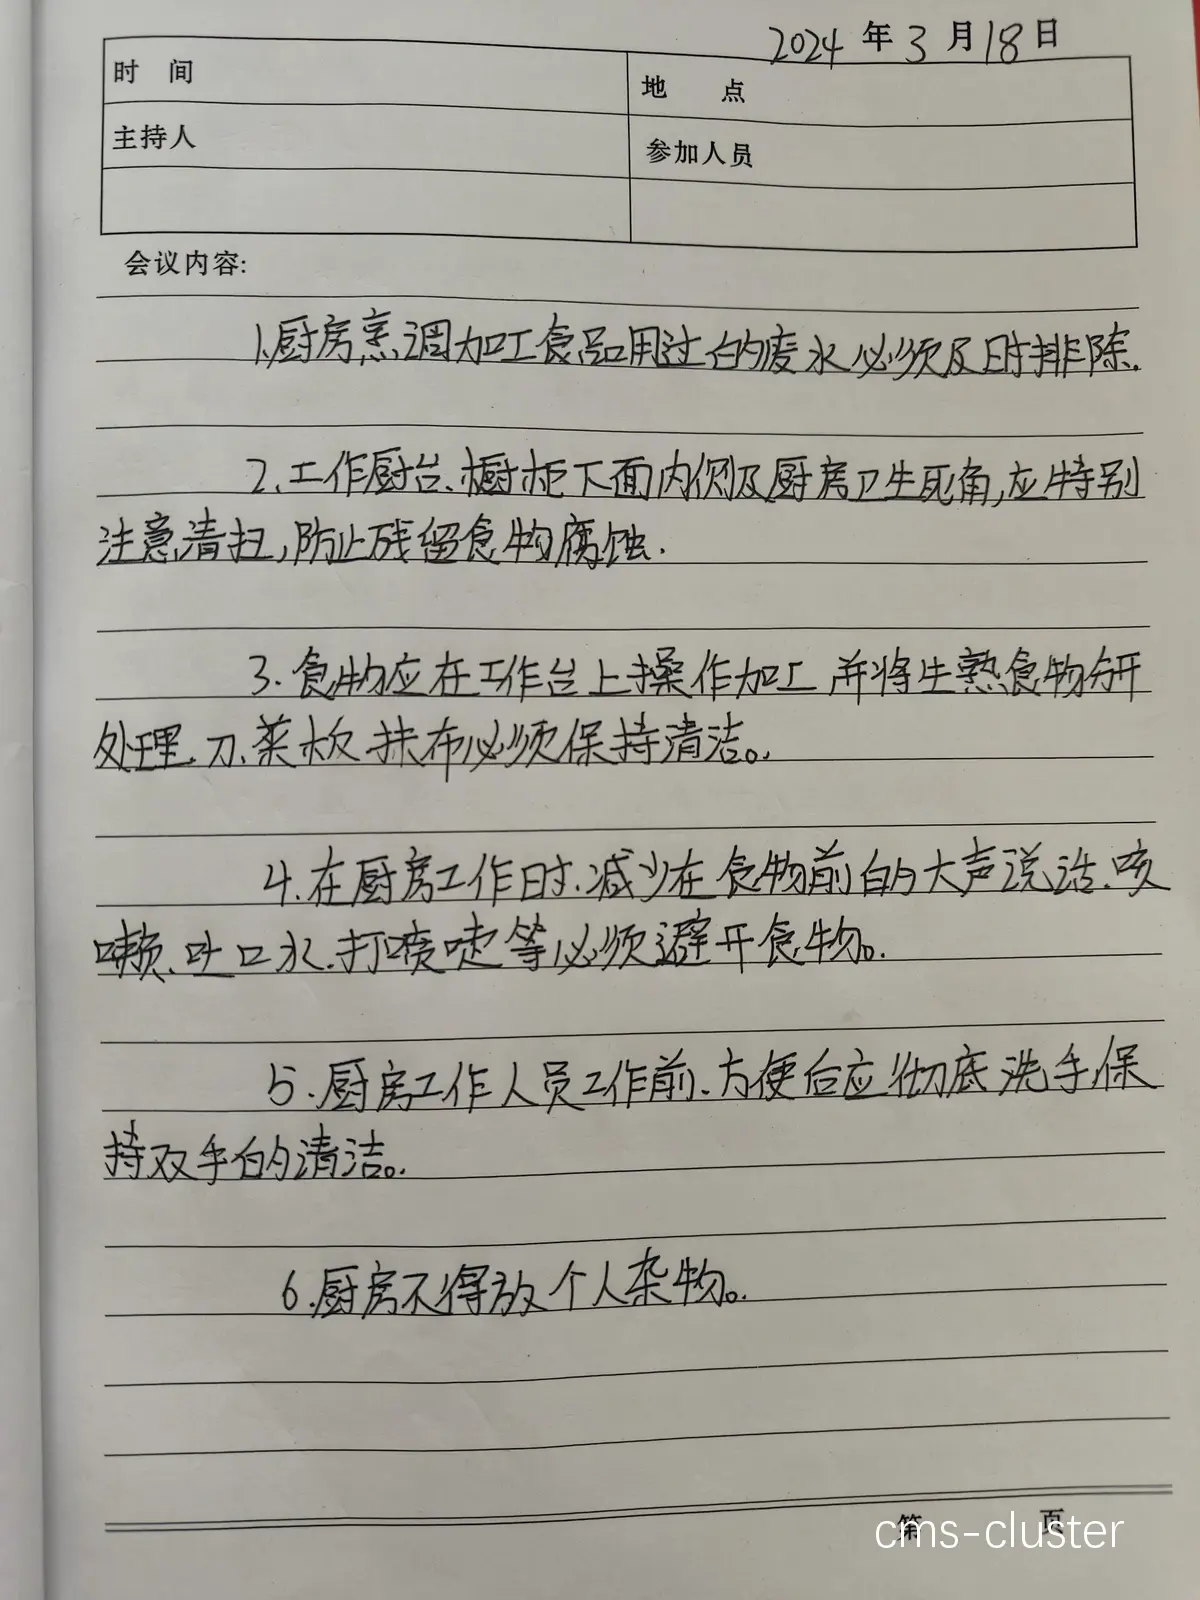 2024 年 3 月 18 日
时 间
地 点
主持人
参加人员
会议内容:
1.厨房烹调加工食品用过的废水必须及时排除.
2.工作厨台、橱柜下面内侧及厨房卫生死角,应特别
注意清扫,防止残留食物腐蚀.
3.食物应在工作台上操作加工 并将生熟食物分开
处理.刀.菜板.抹布必须保持清洁。.
4.在厨房工作时.减少在食物前的大声说话.咳
嗽、吐口水.打喷嚏等必须避开食物。.
5.厨房工作人员工作前.方便后应彻底洗手,保
持双手的清洁。.
6.厨房不得放个人杂物。.
第 页
cms-cluster